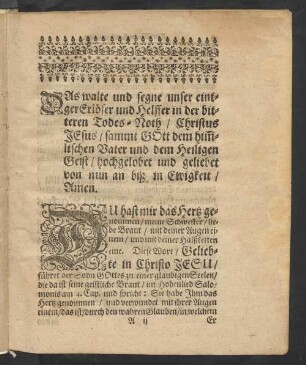 DAs walte und segne unser eini-
ger Erlöser und Helffer in der bit-
teren Todes-Noth / Christus
JEsus / sammt GOtt dem him̃-
lischen Vater und dem Heiligen
Geist / hochgelobet und geliebet
von nun an biß in Ewigkeit /
Amen.
DU hast mir das Hertz ge-
nommen / meine Schwester / lie-
be Braut / mit deiner Augen ei-
nem / und mit deiner Halßketten
eine. Diese Wort / Gelieb-
te in Christo JESU /
führet der Sohn GOttes zu einer glaubigen Seelen /
die da ist seine geistliche Braut / im Hohenlied Salo-
monis am 4. Cap. und spricht: Sie habe Ihm das
Hertz genommen / und verwundet mit ihrer Augen
einem / das ist / durch den wahren Glauben / in welchem
A ij Er